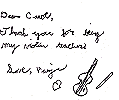 Dear Carol,
Thank you for being
my violin teacher
Love, Paige